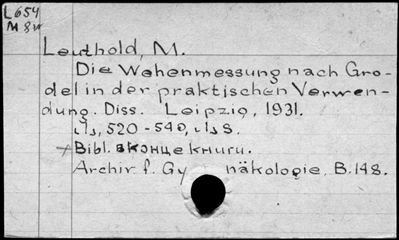 L654
M 8
Leuthold, M.
Die Wehenmessung nach Gro-
del in der praktischen Verwen-
dung. Diss. Leipzig, 1931.
520-540, S.
Bibl. в конце книги.
Archiv f. Gy näkologie, B. 148.